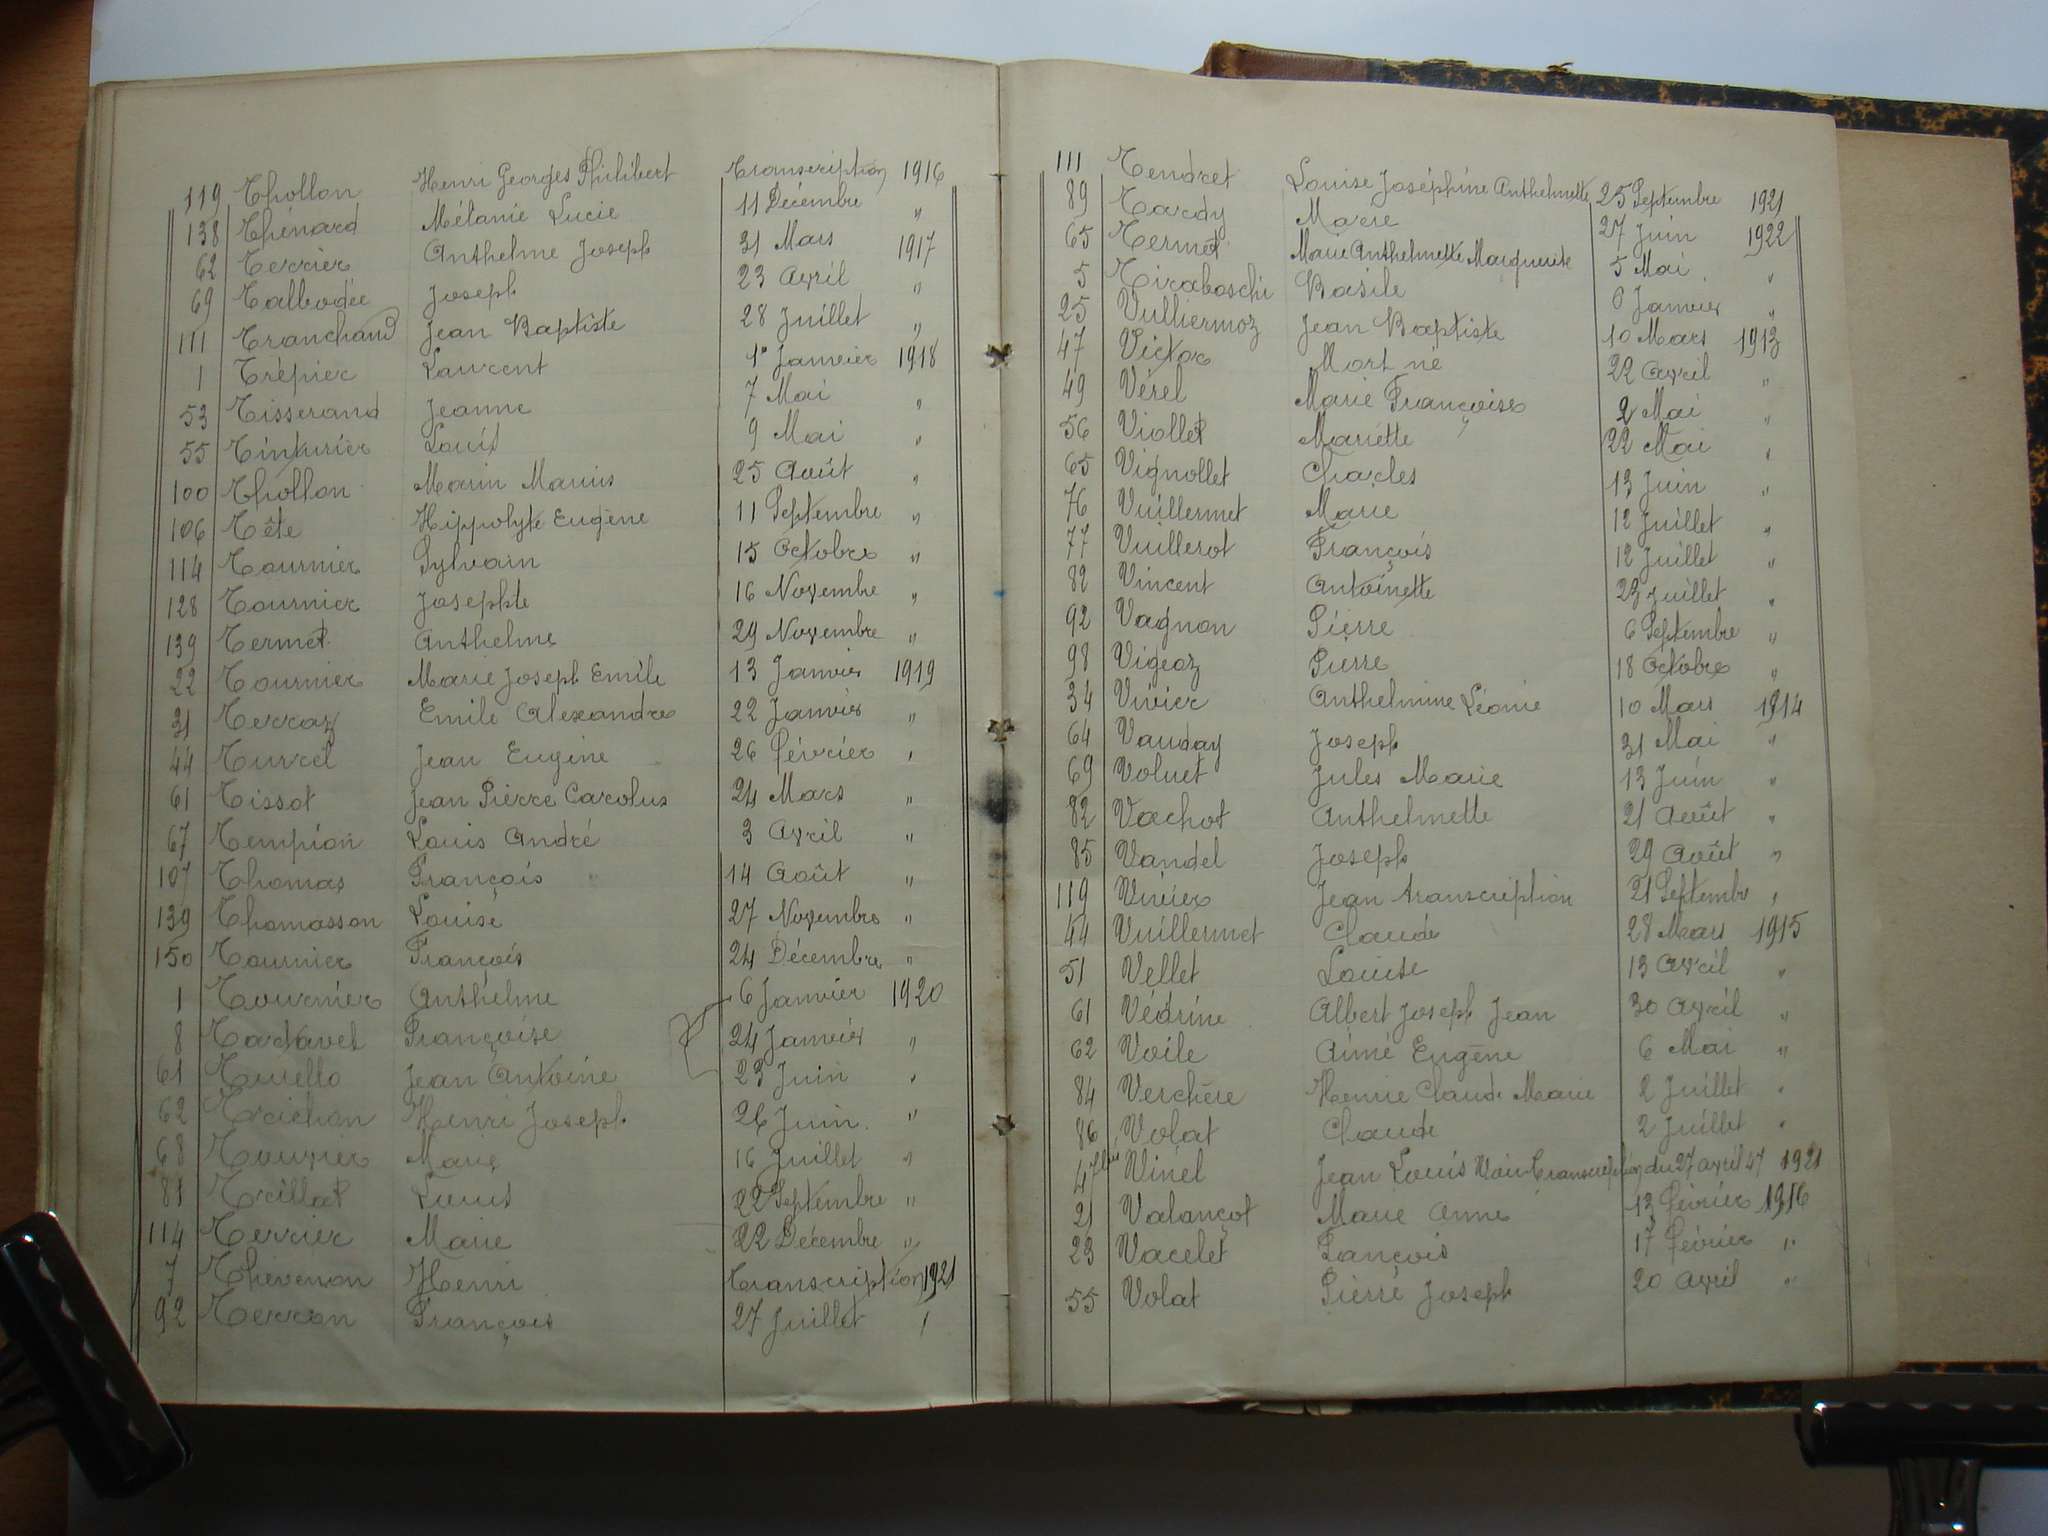 119 Thollon Henri Georges Philibert Transcription 1916
138 Thénard Mélanie Lucie 11 Décembre "
62 Terrier Anthelme Joseph 31 Mars 1917
69 Talbodée Joseph 23 Avril "
111 Tranchand Jean Baptiste 28 Juillet "
1 Trépier Laurent 1° Janvier 1918
53 Tisserand Jeanne 7 Mai "
55 Tinturier Louis 9 Mai "
100 Thollon Marin Marius 25 Août "
106 Tête Hippolyte Eugène 11 Septembre "
114 Tournier Sylvain 15 Octobre "
128 Tournier Josephte 16 Novembre "
139 Termet Anthelme 29 Novembre "
22 Tournier Marie Joseph Emile 13 Janvier 1919
31 Terraz Emile Alexandre 22 Janvier "
44 Turrel Jean Eugène 26 février "
61 Tissot Jean Pierre Carolus 24 Mars "
67 Tempion Louis André 3 Avril "
107 Thomas François 14 Août "
139 Thomasson Louise 27 Novembre "
150 Tournier François 24 Décembre "
1 Tournier Anthelme 6 Janvier 1920
8 Tartavel Françoise 24 Janvier "
61 Jean Antoine 23 Juin "
62 Henri Joseph 26 Juin "
68 Touvier Marie 16 Juillet "
81 Treillat Louis 22 Septembre "
114 Terrier Marie 22 Décembre "
7 Thévenon Henri Transcription 1921
92 Terron François 27 Juillet "
111 Tendret Louise Joséphine Anthelmette 25 Septembre 1921
89 Tardy Marie 27 Juin 1922
65 Termet Marie Anthelmette Marguerite 5 Mai "
5 Tiraboschi Basile 6 Janvier "
25 Vulliermoz Jean Baptiste 10 Mars 1913
47 Victor Mort né 22 Avril "
49 Vérel Marie Françoise 2 Mai "
56 Viollet Mariette 22 Mai "
65 Vignollet Charles 13 Juin "
76 Vuillermet Marie 12 Juillet "
77 Vuillerot François 12 Juillet "
82 Vincent Antoinette 23 Juillet "
92 Vagnon Pierre 6 Septembre "
98 Vigeoz Pierre 18 Octobre "
34 Vivier Anthelmine Léonie 10 Mars 1914
64 Vauday Joseph 31 Mai "
69 Voluet Jules Marie 13 Juin "
82 Vachot Anthelmette 21 Août "
85 Vandel Joseph 29 Août "
119 Vivier Jean transcription 21 Septembre "
44 Vuillermet Claude 28 Mars 1915
51 Vellet Louise 13 Avril "
61 Védrine Albert Joseph Jean 30 Avril "
62 Voile Aimé Eugène 6 Mai "
84 Verchère Henrie Claude Marie 2 Juillet "
86 Volat Claude 2 Juillet "
47 bis Vinel Jean Louis Transcription du 27 avril 47 1921
21 Valançot Marie Anne 13 Février 1916
23 Vacelet François 17 février "
55 Volat Pierre Joseph 20 Avril "